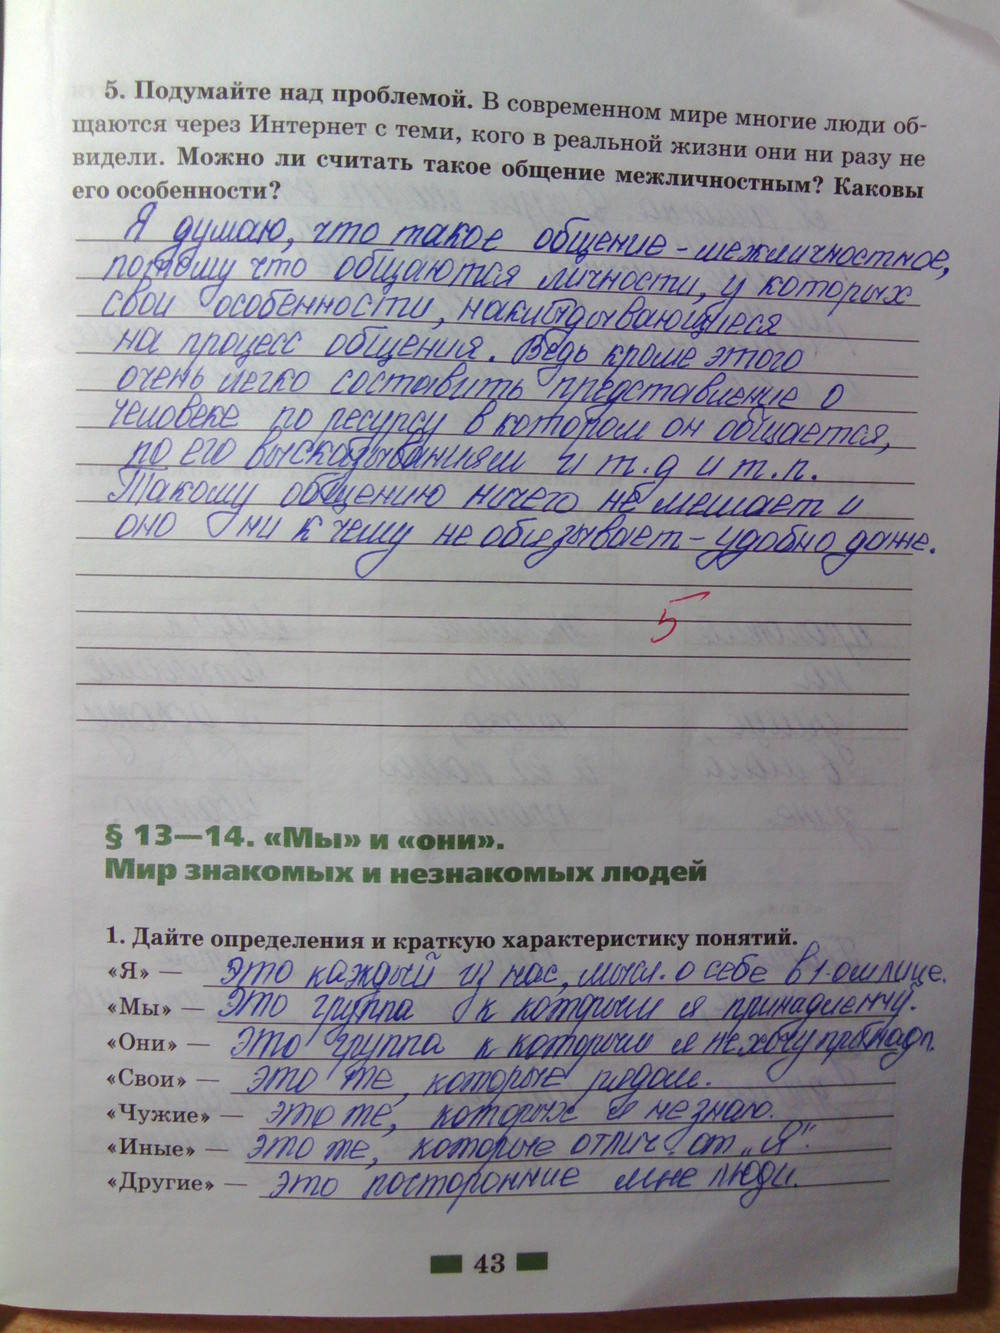 5. Подумайте над проблемой. В современном мире многие люди об-
щаются через Интернет с теми, кого в реальной жизни они ни разу не
видели. Можно ли считать такое общение межличностным? Каковы
его особенности?
Я думаю, что такое общение - межличностное,
потому что общаются личности, у которых
свои особенности, накладывающиеся
на процесс общения. Ведь кроме этого
очень легко составить представление о
человеке по ресурсу в котором он общается,
по его высказываниям и т.д и т.п.
Такому общению ничего не мешает и
оно ни к чему не обязывает - удобно даже.
5
§ 13—14. «Мы» и «они».
Мир знакомых и незнакомых людей
1. Дайте определения и краткую характеристику понятий.
«Я» — это каждый из нас, мысл. о себе в 1-ом лице.
«Мы» — это группа к которым я принадлежу.
«Они» — это группа к которым я не хочу принадл.
«Свои» — это те, которые рядом.
«Чужие» — это те, которых я не знаю.
«Иные» — это те, которые отлич от „Я".
«Другие» — это посторонние мне люди.
43